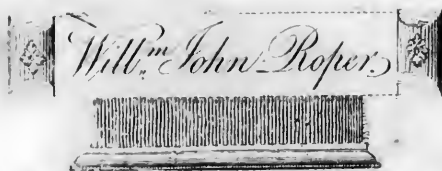 Will.m John Roper